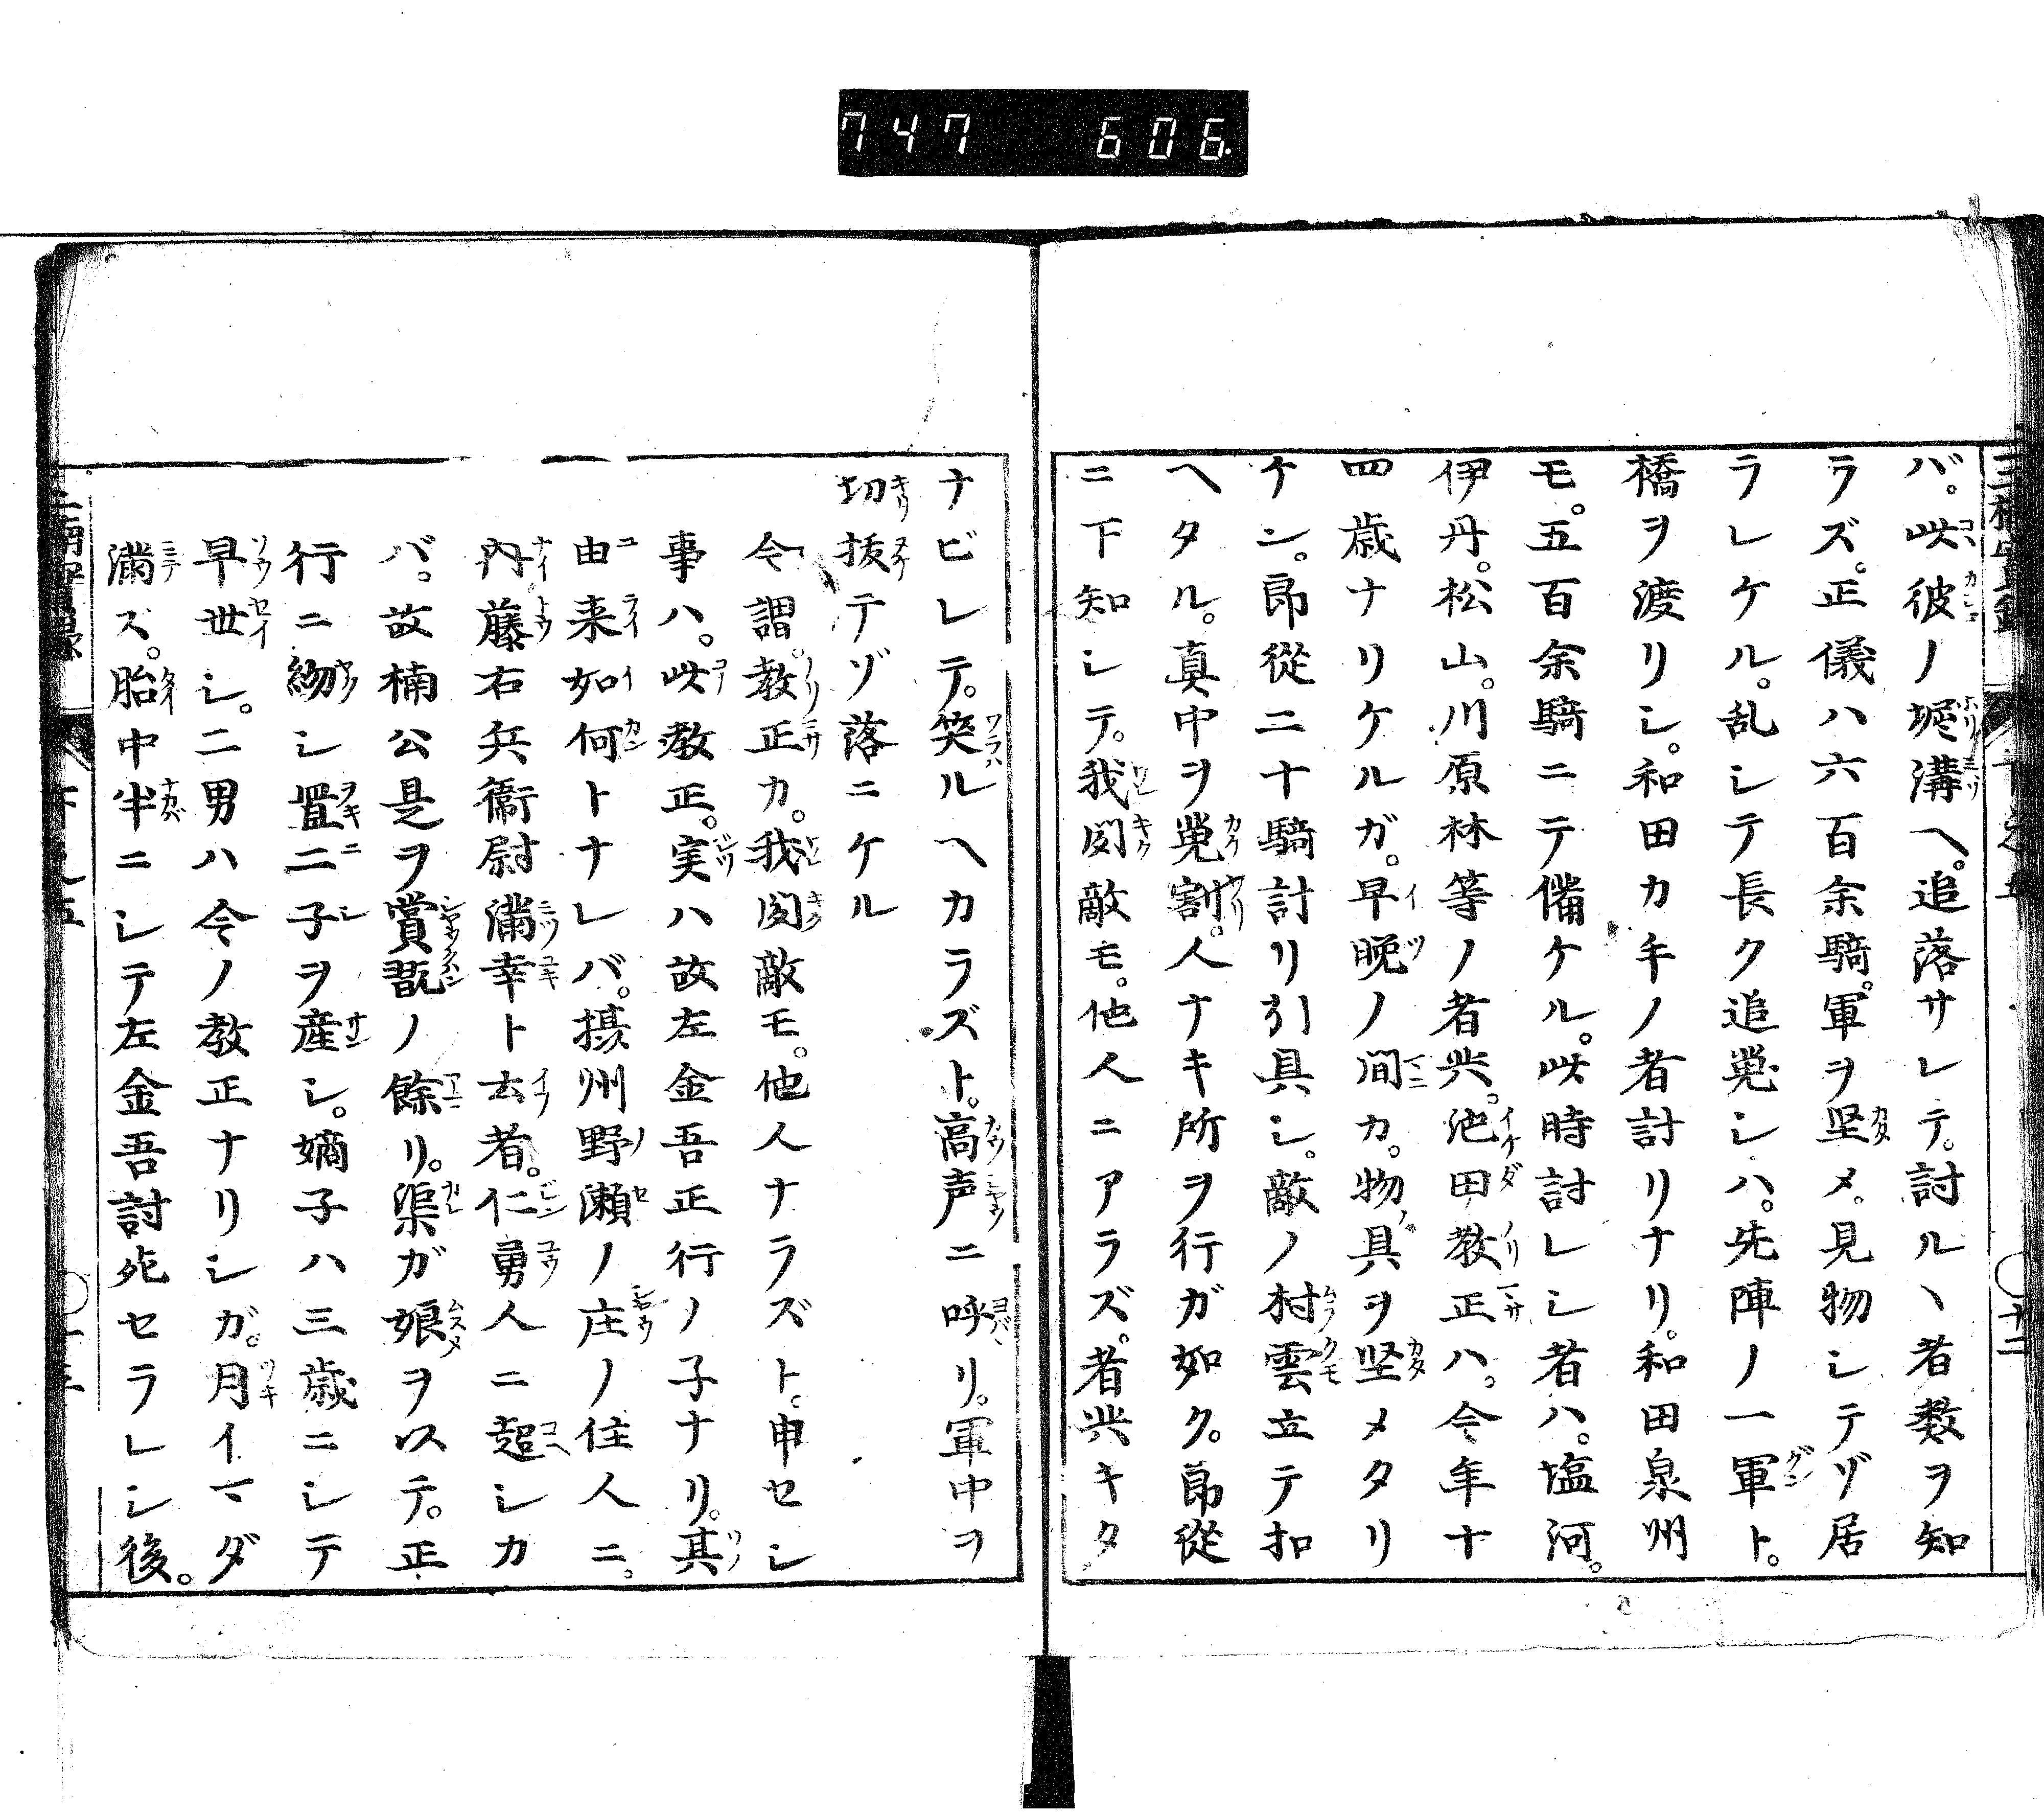 747 606.
バ。此彼ノ堀溝ヘ。追落サレテ。討ル丶者数ヲ知
ラズ。正儀ハ六百余騎。軍ヲ堅メ。見物シテゾ居
ラレケル。乱シテ長ク追蒐シハ。先陣ノ一軍ト。
橋ヲ渡リシ。和田カ手ノ者計リナリ。和田泉州
モ。五百余騎ニテ備ケル。此時討レシ者ハ。塩河。
伊丹。松山。川原林等ノ者共。池田教正ハ。今年十
四歳ナリケルガ。早晩ノ間カ。物具ヲ堅メタリ
ケン。郎従二十騎計リ引具シ。敵ノ村雲立テ扣
ヘタル。真中ヲ蒐割。人ナキ所ヲ行ガ如ク。郎従
ニ下知シテ。我図敵モ。他人ニアラズ。者共キタ
ナビレテ。笑ルヘカラズト。高声ニ呼リ。軍中ヲ
切抜テゾ落ニケル
今謂。教正カ。我図敵モ。他人ナラズト。申セシ
事ハ。此教正。実ハ故左金吾正行ノ子ナリ。其
由来如何トナレバ。摂州野瀬ノ庄ノ住人ニ。
内藤右兵衛尉満幸ト云者。仁勇人ニ超シカ
バ。故楠公是ヲ賞翫ノ餘リ。渠ガ娘ヲ以テ。正
行ニ𫃵シ置二子ヲ産シ。嫡子ハ三歳ニシテ
早世シ。二男ハ今ノ教正ナリシガ。月イマダ
満ズ。胎中半ニシテ左金吾討死セラレシ後。